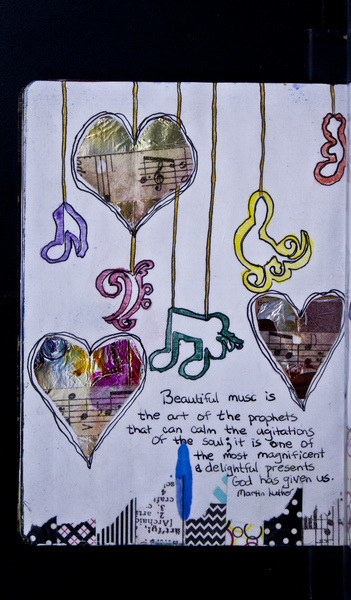 Beautiful music is
the art of the prophets
that can calm the agitations
of the soul; it is one of
the most magnificent
& delightful presents
God has given us.
Martin Luther